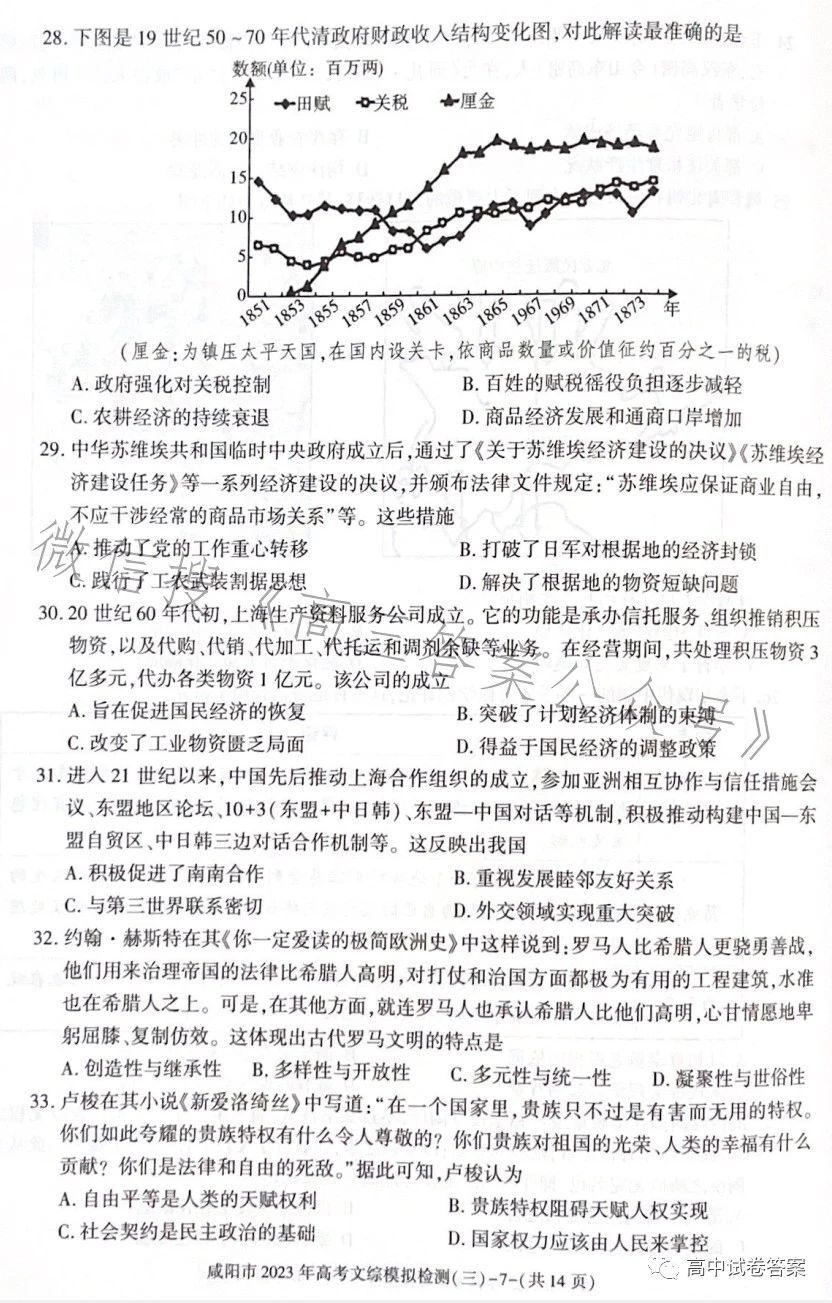 28. 下图是 19 世纪 50 ~ 70 年代清政府财政收入结构变化图，对此解读最准确的是
数额(单位：百万两)
25
田赋 关税 厘金
20
15
10
5
0
1851 1853 1855 1857 1859 1861 1863 1865 1967 1969 1871 1873 年
(厘金：为镇压太平天国，在国内设关卡，依商品数量或价值征约百分之一的税)
A. 政府强化对关税控制 B. 百姓的赋税徭役负担逐步减轻
C. 农耕经济的持续衰退 D. 商品经济发展和通商口岸增加
29. 中华苏维埃共和国临时中央政府成立后，通过了《关于苏维埃经济建设的决议》《苏维埃经
济建设任务》等一系列经济建设的决议，并颁布法律文件规定：“苏维埃应保证商业自由，
不应干涉经常的商品市场关系”等。这些措施
A. 推动了党的工作重心转移 B. 打破了日军对根据地的经济封锁
C. 践行了工农武装割据思想 D. 解决了根据地的物资短缺问题
30. 20 世纪 60 年代初，上海生产资料服务公司成立。它的功能是承办信托服务、组织推销积压
物资，以及代购、代销、代加工、代托运和调剂余缺等业务。在经营期间，共处理积压物资 3
亿多元，代办各类物资 1 亿元。该公司的成立
A. 旨在促进国民经济的恢复 B. 突破了计划经济体制的束缚
C. 改变了工业物资匮乏局面 D. 得益于国民经济的调整政策
31. 进入 21 世纪以来，中国先后推动上海合作组织的成立，参加亚洲相互协作与信任措施会
议、东盟地区论坛、10+3(东盟+中日韩)、东盟—中国对话等机制，积极推动构建中国—东
盟自贸区、中日韩三边对话合作机制等。这反映出我国
A. 积极促进了南南合作 B. 重视发展睦邻友好关系
C. 与第三世界联系密切 D. 外交领域实现重大突破
32. 约翰·赫斯特在其《你一定爱读的极简欧洲史》中这样说到：罗马人比希腊人更骁勇善战，
他们用来治理帝国的法律比希腊人高明，对打仗和治国方面都极为有用的工程建筑，水准
也在希腊人之上。可是，在其他方面，就连罗马人也承认希腊人比他们高明，心甘情愿地卑
躬屈膝、复制仿效。这体现出古代罗马文明的特点是
A. 创造性与继承性 B. 多样性与开放性 C. 多元性与统一性 D. 凝聚性与世俗性
33. 卢梭在其小说《新爱洛绮丝》中写道：“在一个国家里，贵族只不过是有害而无用的特权。
你们如此夸耀的贵族特权有什么令人尊敬的？你们贵族对祖国的光荣、人类的幸福有什么
贡献？你们是法律和自由的死敌。”据此可知，卢梭认为
A. 自由平等是人类的天赋权利 B. 贵族特权阻碍天赋人权实现
C. 社会契约是民主政治的基础 D. 国家权力应该由人民来掌控
咸阳市 2023 年高考文综模拟检测(三)-7-(共 14 页)
微信搜《高三答案公众号》
高中试卷答案